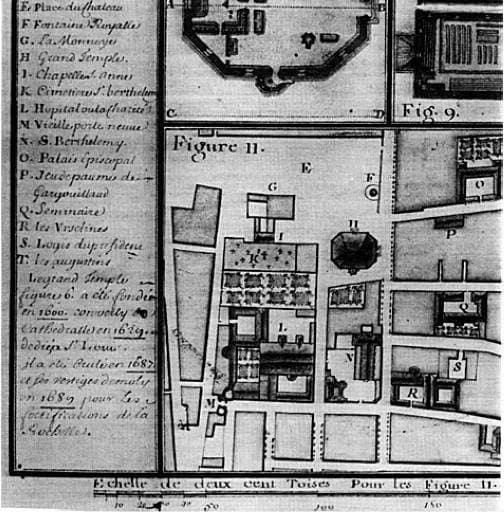 E Place du Chateau
F Fontaine Royalle
G. La Monnoye
H Grand Temple.
I. Chapelle S. Anne
K. Cimetiere S. berthelem
L Hopital ou la Charité
M Vieille porte neuve
N. S. Berthelemy.
O. Palais Episcopal
P. Jeu de paumes de
Gargouillaud
Q. Seminaire
R les Urselines
S. Louis du president
T. les augustins
Le grand Temple
figure 6. a eté fondé
en 1600. converty en
Cathedralle en 1629.
dedié a St. Louis
il a eté brulé en 1687
et ses vestiges demoly
en 1689 pour les
fortifications de la
Rochelle.
A
B
C
D
Fig. 9.
Figure 11.
E
F
G
H
I
K
L
M
N
O
P
Q
R
S
Echelle de deux cent Toises Pour les Figure 11.
10 20 30 40 50 100 150